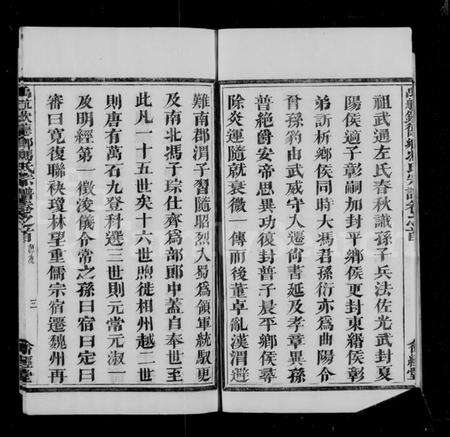 祖武通左氏春秋識孫子兵法佐光武封夏
陽侯適子彰嗣加封平鄉侯更封東緡侯彰
弟訢析鄉侯同時大馮君孫衍亦爲曲陽令
晉孫豹由武威守入遷尚書延及孝章異孫
普絶爵安帝思異功復封普子晨平鄉侯尋
除炎運隨就衰微一傳而後董卓亂漢渭避
難南郡渭子習隨昭烈入蜀爲領軍統馭更
及南北馮子琮仕齊爲部郎中蓋自奉世至
此凡一十五世矣十六世煦徙相州越二世
則唐有萬石九登科選三世則元常元淑一
及明經第一徵浚儀令常之孫曰宿曰定曰
審曰寬復聯袂瓊林望重儒宗宿遷魏州再
三